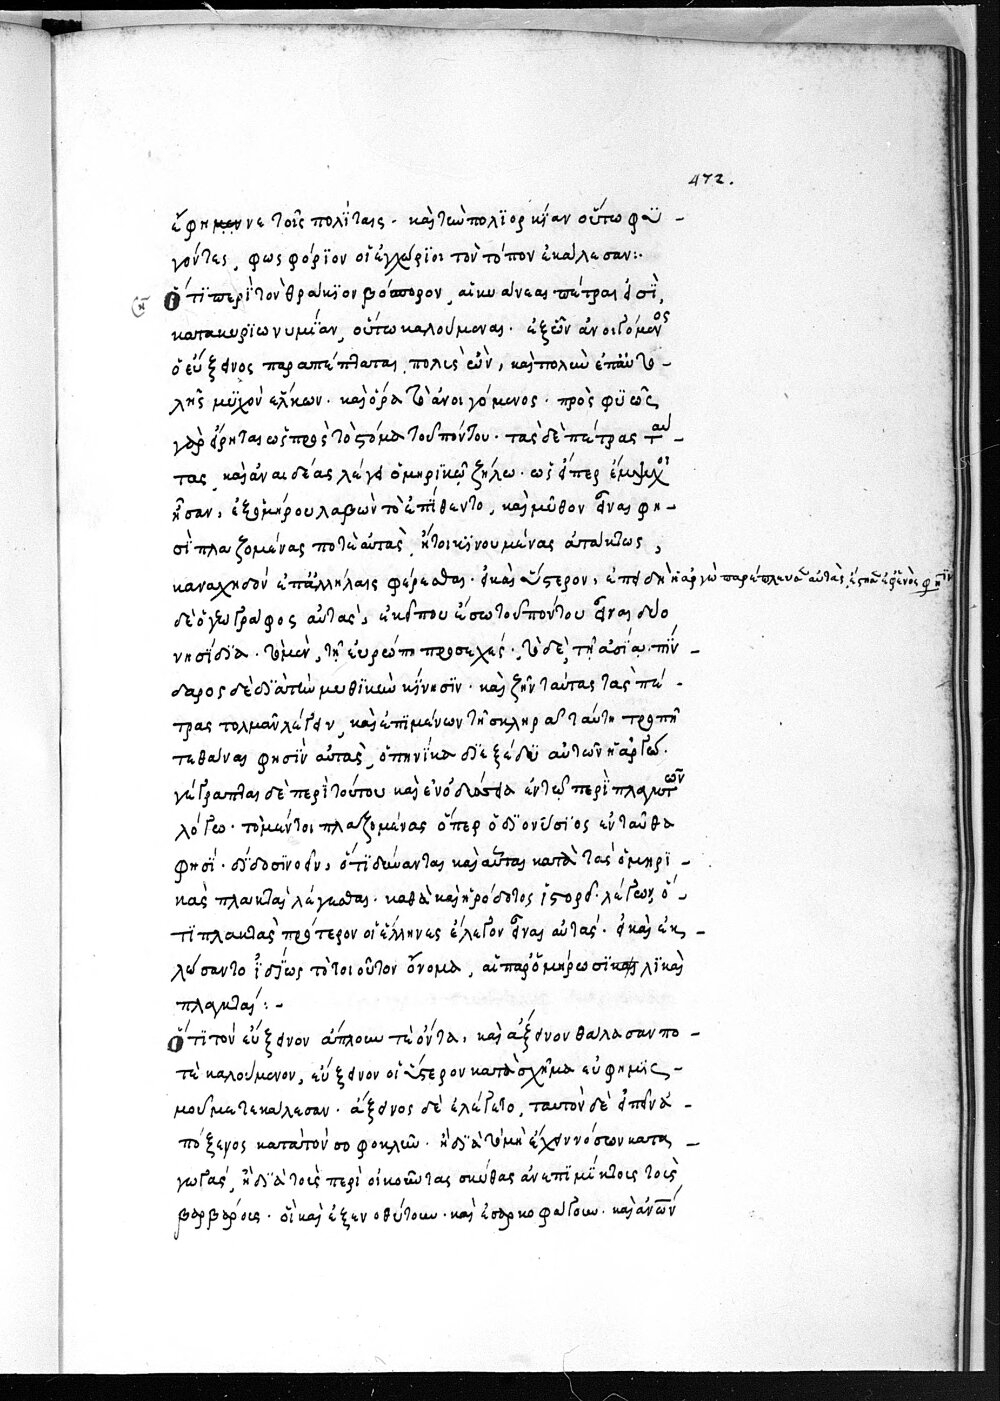 472.
ἔφηνε τοῖς πολίταις· καὶ τὴν πολϊορκίαν οὕτω φυ –
γόντες, φωσφόρϊον οἱ ἐγχώριοι τὸν τόπον ἐκάλεσαν:·
Ὅτϊ περὶ τὸν θράκϊον βόσπορον, αἱ κυάνεαι πέτραι εἰσῒ,
κατακυρίων υμίαν, οὕτω καλούμεναι· ἐξ ὧν ἀνοιγόμενος
ὁ εὔξεινος παραπέπταται, πολὺς ἐὼν, καὶ πολὺν ἐπ' αὐτῷ –
μϋχὸν ἕλκων· καὶ ὅρα τὸ ἀνοιγόμενος· προσφϋῶς
γὰρ εἴρηται ὡς πρὸς τὸ στόμα τοῦ πόντου· τὰς δὲ πέτρας ταύ –
τας, καὶ ἀναιδέας λέγει ὁμηρϊκῷ ζήλω· ὡς εἴπερ ἔμψυχοι
ἦσαν, ἐξ ὁμήρου λαβὼν τὸ ἐπίθετον, καὶ μῦθον εἶναι φη –
σὶ πλαζομένας ποτὲ αὐτὰς, ἤτοι κϊνουμένας ἀτάκτως,
καναχηδὸν ἐπ' ἀλλήλαις φέρεσθαι· εἰ καὶ ὕστερον, ἐπειδὴ ἡ ἀργὼ παρέπλευσεν αὐτὰς, ἔστησαν φησὶν
δὲ ὁ γεωγράφος αὐτὰς, ἐκεῖ που ἔσω τοῦ πόντου εἶναι δύο
νησίδϊα· τὸ μὲν, τῇ εὐρώπη προσεχές· τὸ δὲ, τῇ ἀσίᾳ· πίν –
δαρος δὲ διὰ τὴν μυθϊκὴν κίνησϊν· καὶ ζῆν ταύτας τὰς πέ –
τρας τολμᾶ λέγειν, καὶ ἐπιμένων τῇ σκληρᾶ ταύτη τροπῇ
τεθνάναι φησὶν αὐτὰς, ὁπηνίκα διεξέδυ αὐτῶν ἡ ἀργώ·
γέγραπται δὲ περὶ τούτου καὶ ἐν ὀδυσσεία ἐν τῷ περὶ πλαγκτῶν
λόγω· τὸ μέντοι πλαζομένας ὅπερ ὁ διονύσϊος ἐνταῦθα
φησί· δίδωσιν οὖν, ὅτι δύνανται καὶ αὗται κατὰ τὰς ὁμηρι –
κὰς πλαγκταὶ λέγεσθαι· καθὰ καὶ ἡρόδοτος ἱστορεῖ· λέγων, ὅ –
τϊ πλαγκτὰς πρότερον οἱ ἕλληνες ἔλεγον εἶναι αὐτάς· εἰ καὶ ἐκ –
λώσαντο ἰδίως τὸ τοιοῦτον ὄνομα, αἱ παρ' ὁμήρω σϊκελϊκαὶ
πλαγκταί:–
Ὅτϊ τὸν εὔξεινον ἄπλουν τε ὄντα, καὶ ἄξεινον θάλασσαν πο –
τὲ καλούμενον, εὔξεινον οἱ ὕστερον κατὰ σχῆμα εὐφημισ –
μοῦ μετεκάλεσαν· ἄξεινος δὲ ἐλέγετο, ταυτὸν δὲ εἰπεῖν ἀ –
πόξενος κατὰ τὸν σοφοκλῆν· ἢ διὰ τὸ μὴ ἔχειν νήσων κατα –
γωγάς, ἢ διὰ τοὺς περὶ οἰκοῦντας σκύθας ἀνεπιμίκτοις τοῖς
βαρβάροις· οἳ καὶ ἐξενοθύτουν· καὶ ἐσαρκοφάγουν· καὶ ἀνῶν